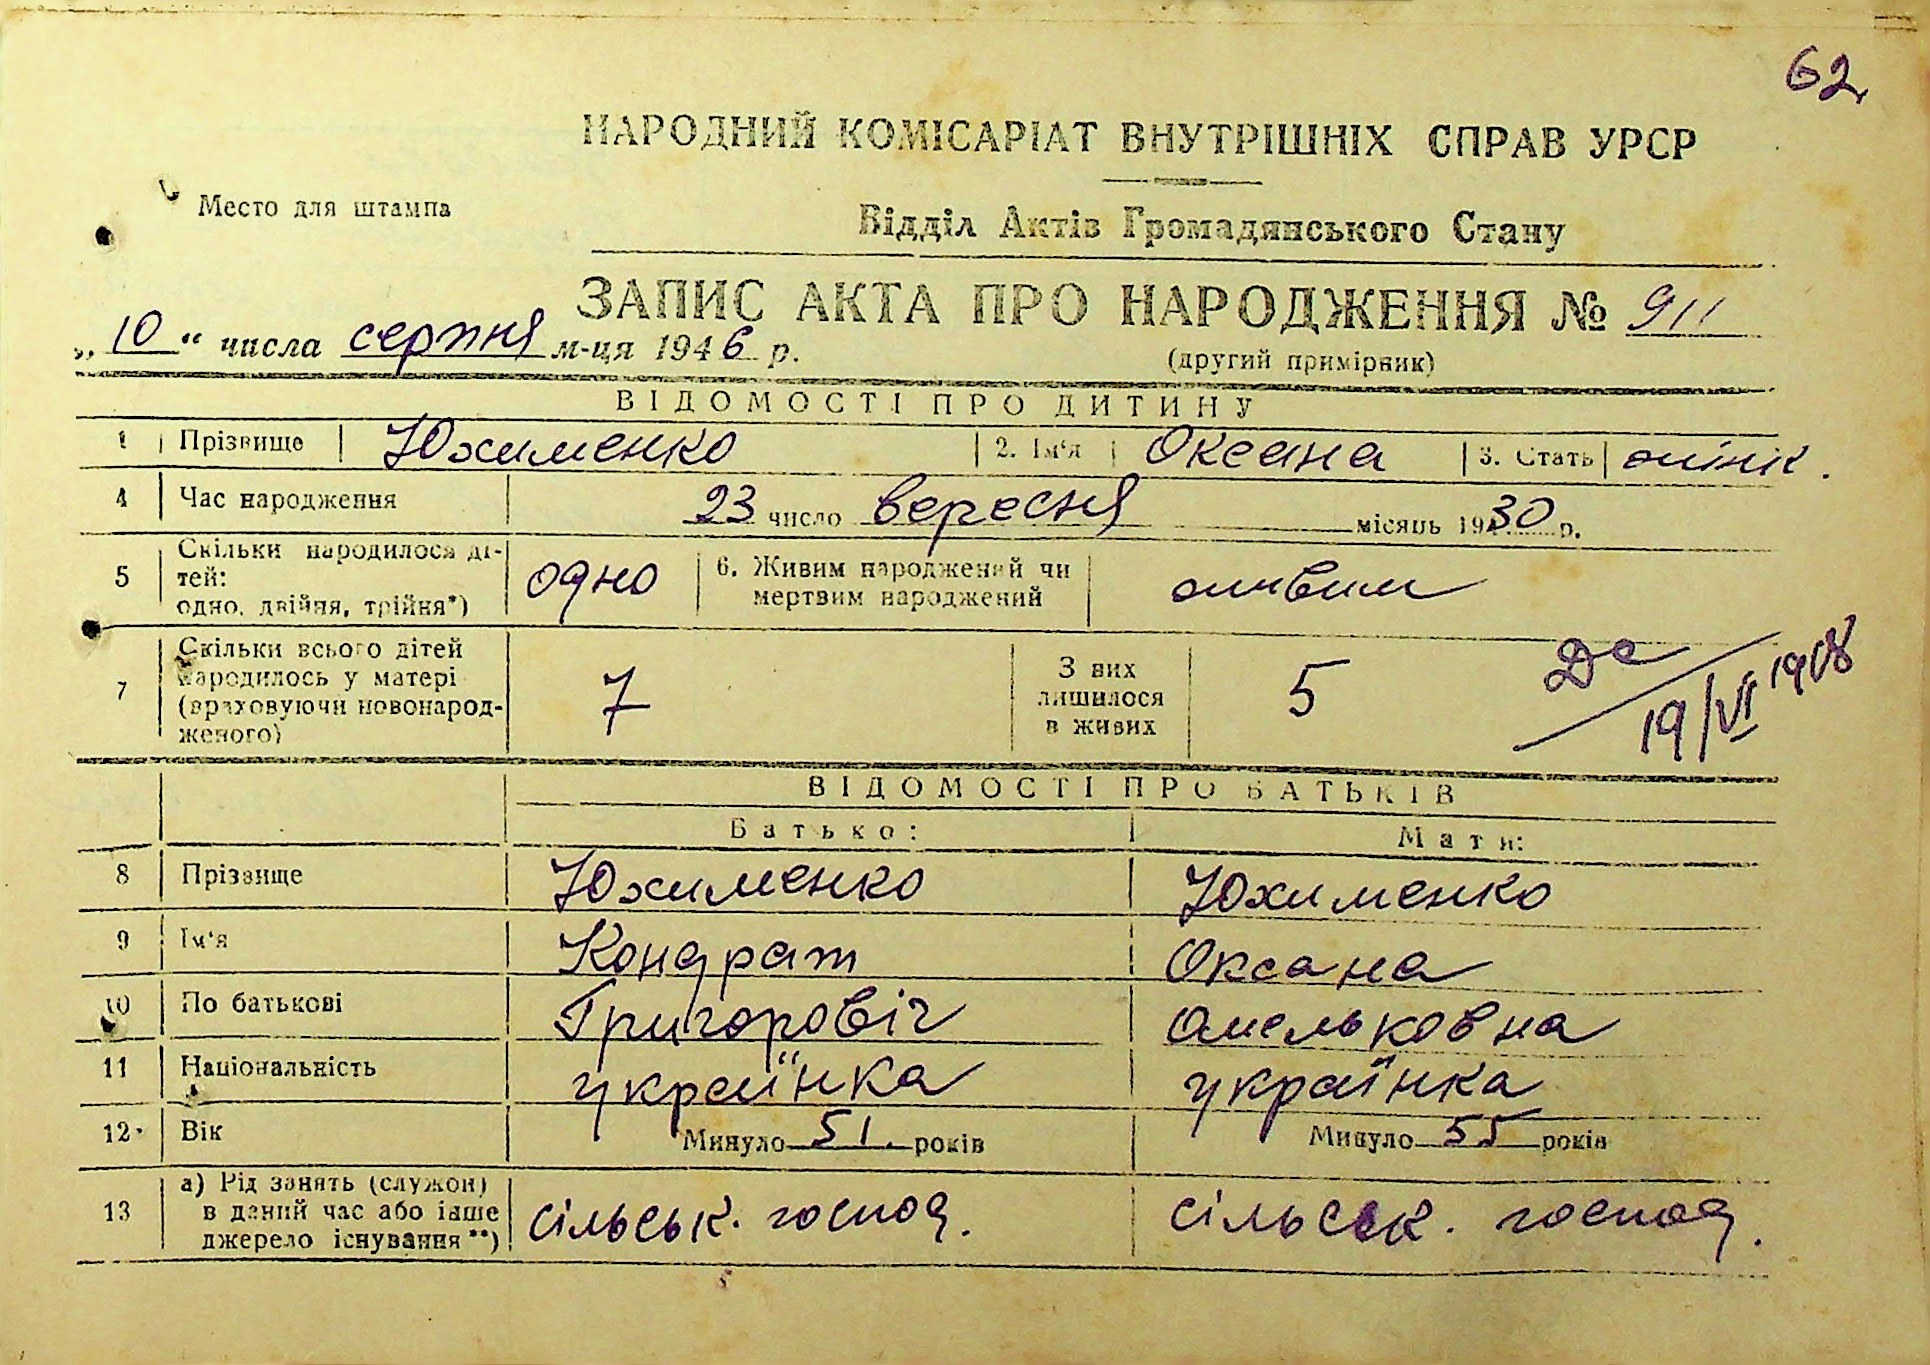 62
НАРОДНИЙ КОМІСАРІАТ ВНУТРІШНІХ СПРАВ УРСР
Место для штампа
Відділ Актів Громадянського Стану
ЗАПИС АКТА ПРО НАРОДЖЕННЯ № 911
„10“ числа серпня м-ця 1946 р.
(другий примірник)
ВІДОМОСТІ ПРО ДИТИНУ
1 Прізвище Юхименко 2. Ім'я Оксана 3. Стать жінк.
4 Час народження 23 число вересня місяць 1930 р.
5 Скільки народилося ді-
тей:
одно, двійня, трійня*) одно 6. Живим народжений чи
мертвим народжений живим
7 Скільки всього дітей
народилось у матері
(враховуючи новонарод-
женого) 7 З них
лишилося
в живих 5
19/VI 1968
ВІДОМОСТІ ПРО БАТЬКІВ
Батько: Мати:
8 Прізвище Юхименко Юхименко
9 Ім'я Кондрат Оксана
10 По батькові Григоровіч Омельковна
11 Національність українка українка
12 Вік Минуло 51. років Минуло 55 років
13 а) Рід занять (служби)
в даний час або інше
джерело існування**) сільськ. господ. сільськ. господ.